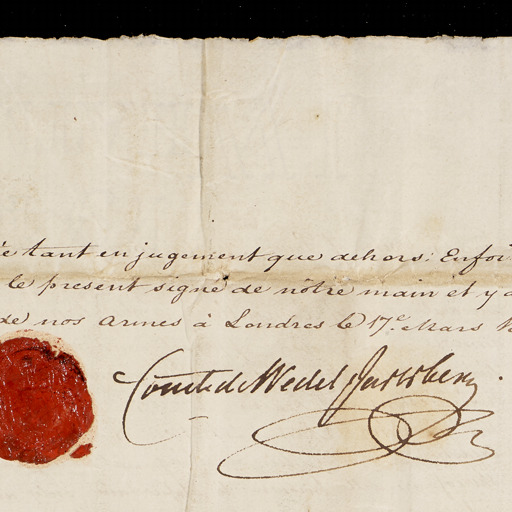 tant en jugement que dehors: En foi
le present signé de nôtre main et y a
de nos armes à Londres le 17.e Mars
Comte de Wedel Jarlsberg.